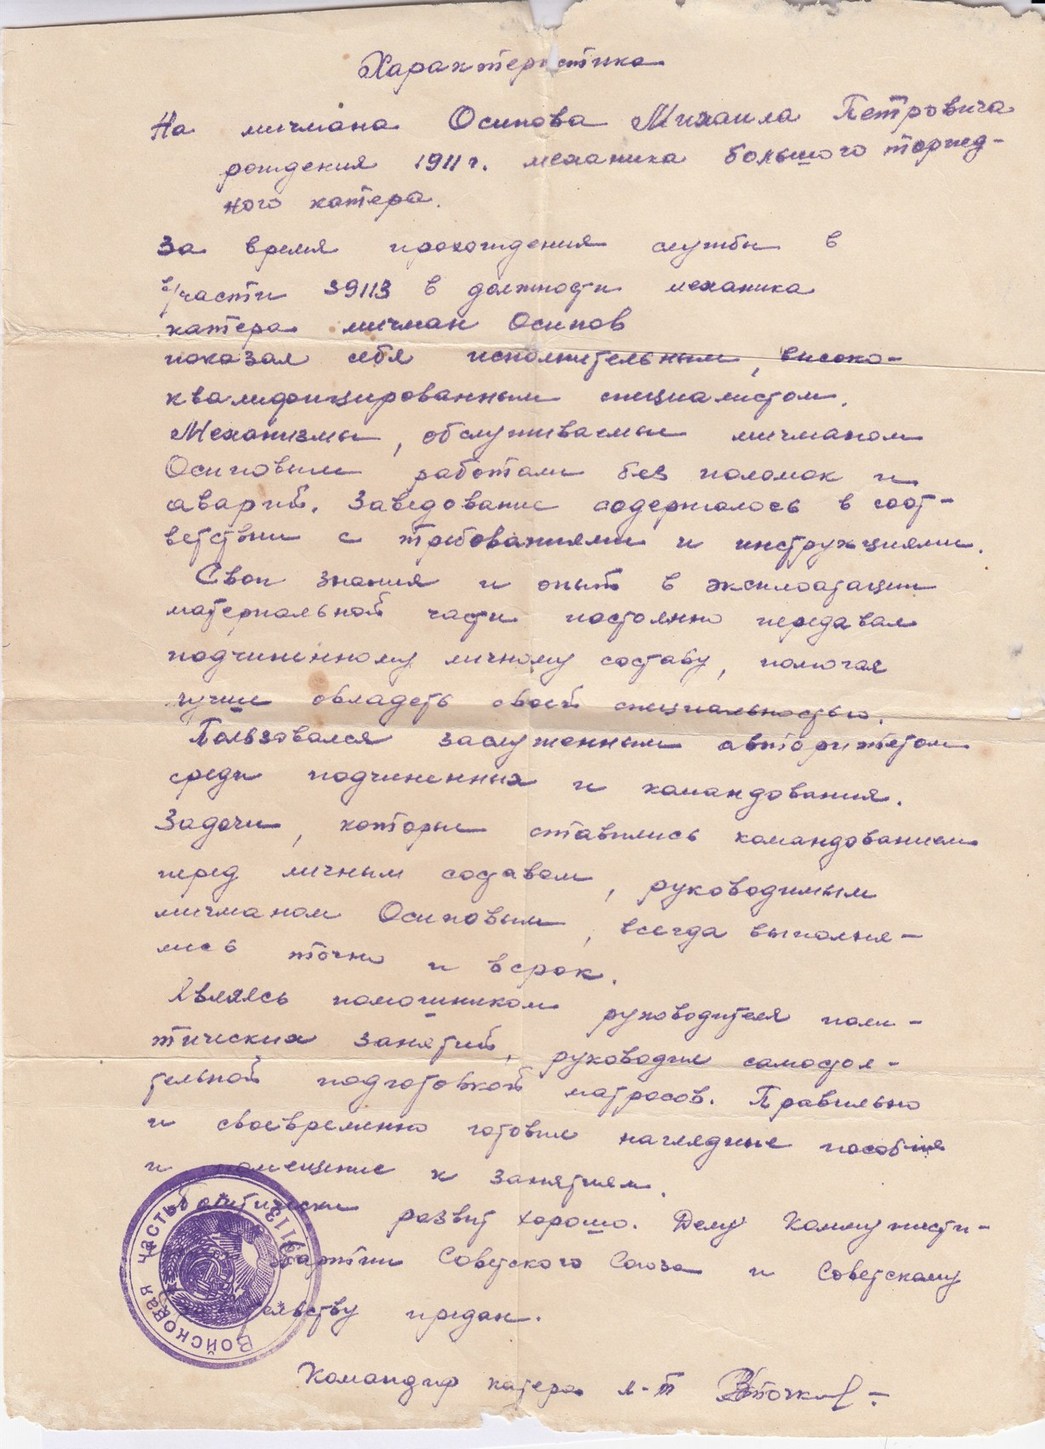 Характеристика
На мичмана Осипова Михаила Петровича
рождения 1911 г. механика большого торпед-
ного катера.
За время прохождения службы в
в/части 39113 в должности механика
катера мичман Осипов
показал себя исполнительным, высоко-
квалифицированным специалистом.
Механизмы, обслуживаемые мичманом
Осиповым работали без поломок и
аварий. Заведование содержалось в соот-
ветствии с требованиями и инструкциями.
Свои знания и опыт в эксплоатации
материальной части постоянно передавал
подчиненному личному составу, помогая
лучше овладеть своей специальностью.
Пользовался заслуженным авторитетом
среди подчиненных и командования.
Задачи, которые ставились командованием
перед личным составом, руководимым
мичманом Осиповым, всегда выполня-
лись точно и в срок.
Являясь помошником руководителя поли-
тических занятий, руководил самостоя-
тельной подготовкой матросов. Правильно
и своевременно готовил наглядные пособия
и помещение к занятиям.
Политически развит хорошо. Делу Коммунисти-
партии Советского Союза и Советскому
предан.
Командир катера л-т
Войсковая часть 39113